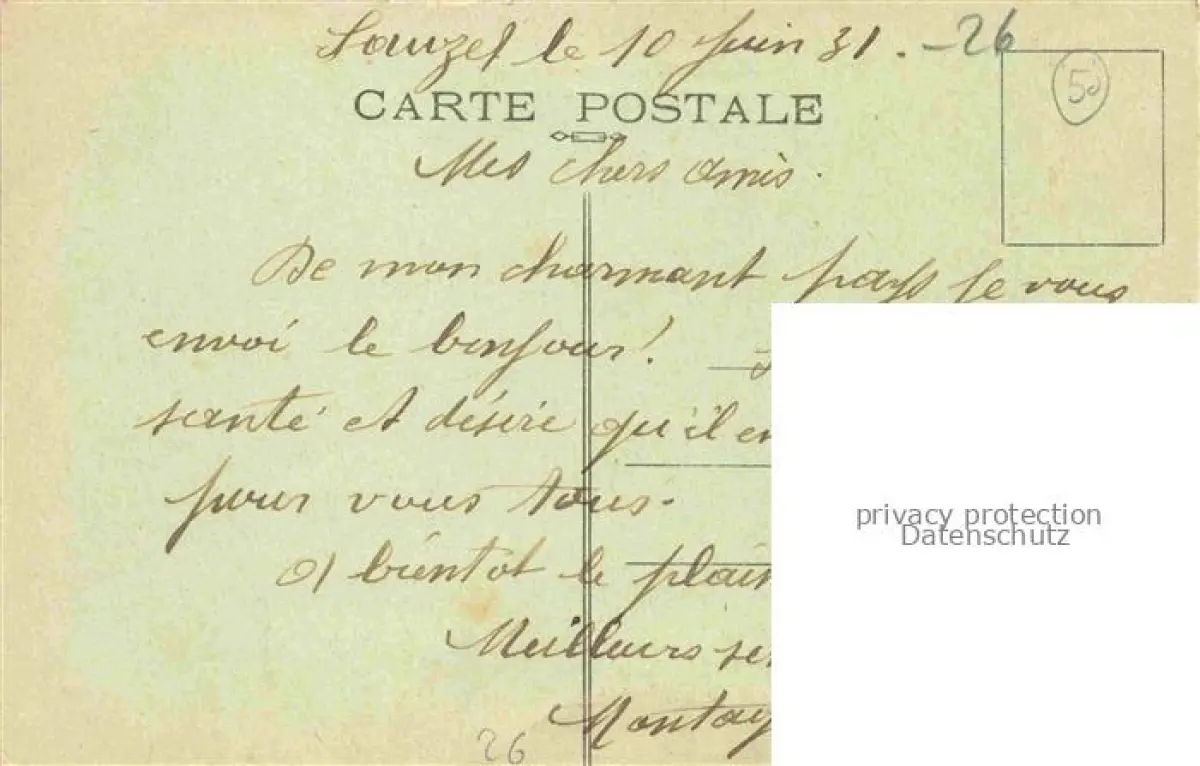 Sauzet le 10 juin 31. -26
50
CARTE POSTALE
Mes chers amis.
De mon charmant pays je vous
envoi le bonjour!
santé et désire qu'il en
pour vous tous.
A bientôt le plai
Meilleurs se
Montay
privacy protection
Datenschutz
26